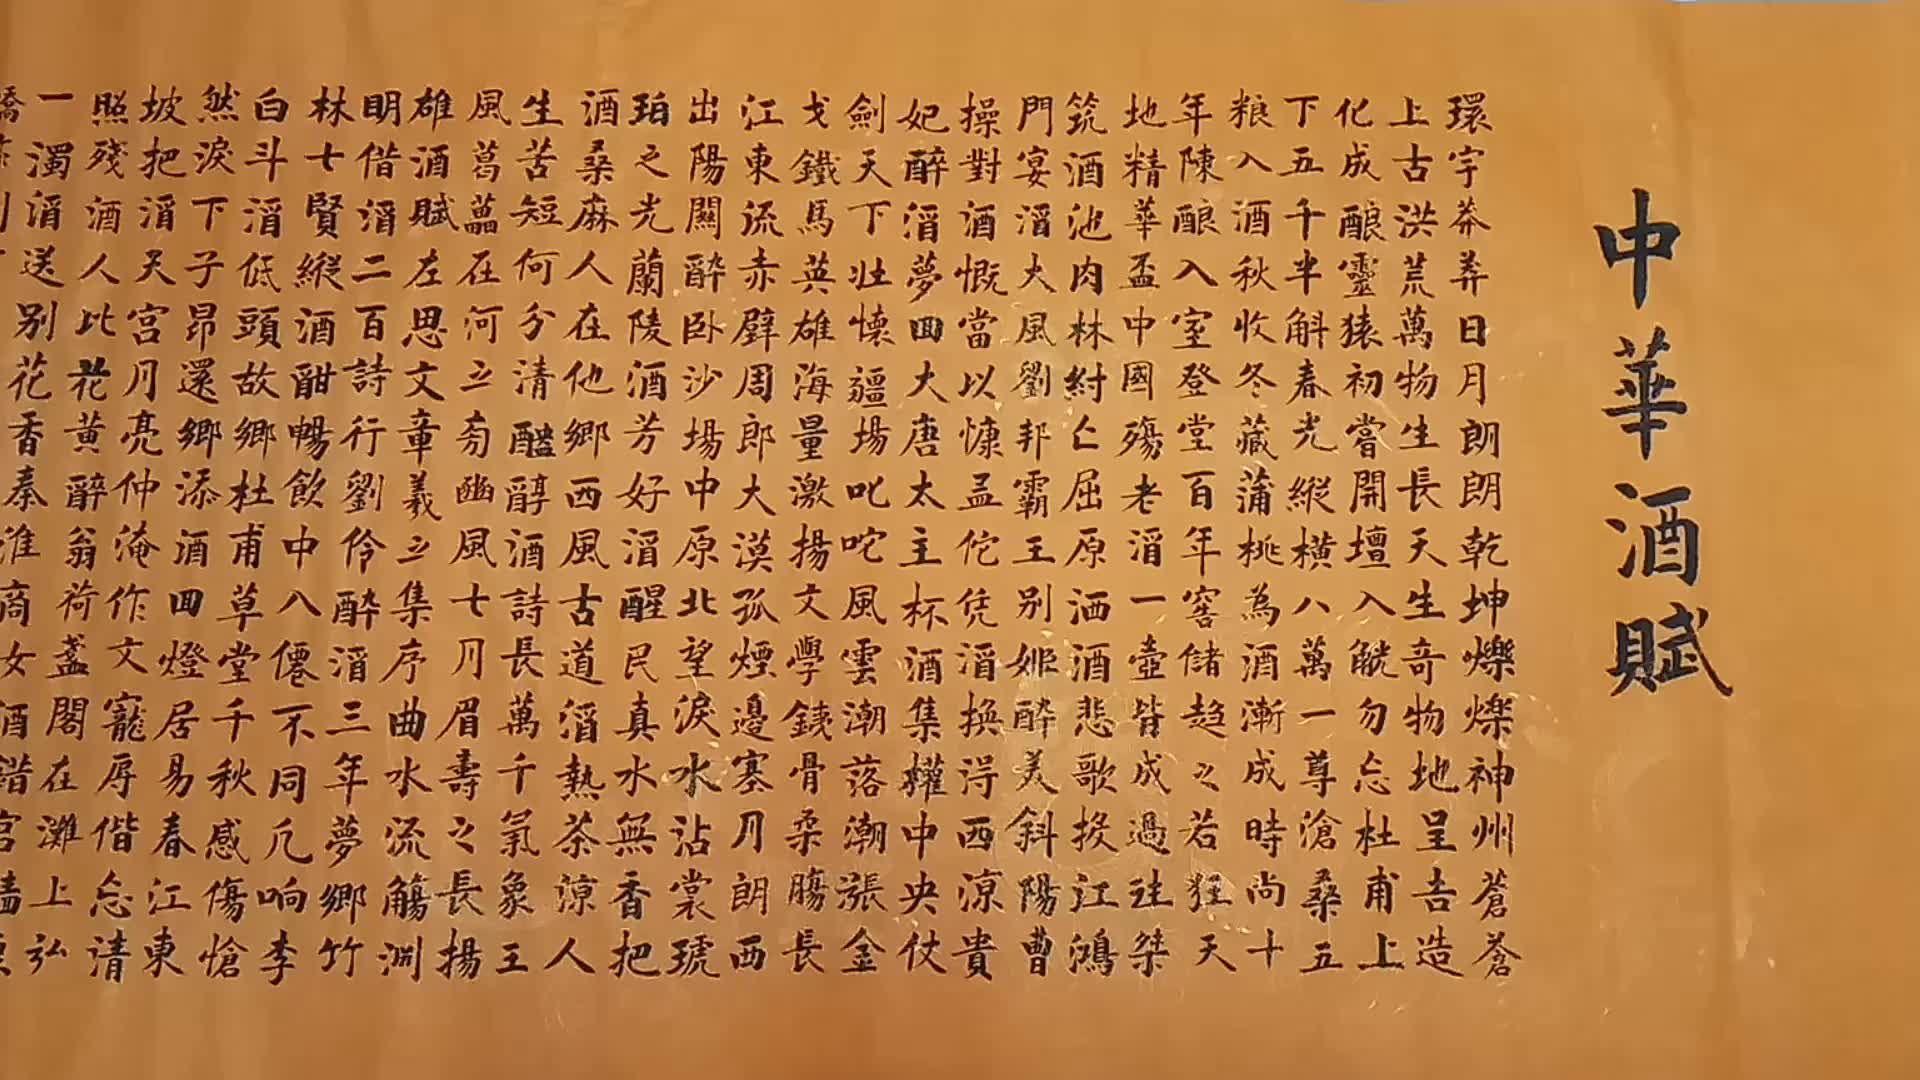 中華酒賦
環宇莽莽日月朗朗乾坤爍爍神州蒼蒼
上古洪荒萬物生長天生奇物地呈吉造
化成酿靈猿初嘗開壇入觥勿忘杜甫上
下五千半斛春光縱横八萬一尊滄桑五
粮入酒秋收冬藏蒲桃為酒漸成時尚十
年陳酿入室登堂百年窖儲趋之若狂天
地精華盃中國殤老酒一壺皆成過往桀
筑酒池肉林紂亡屈原洒酒悲歌掞江鴻
門宴酒大風劉邦霸王别姬醉美斜陽曹
操對酒慨當以慷孟佗凭酒换得西凉貴
妃醉酒夢回大唐太主杯酒集權中央仗
劍天下壮懷疆場叱咤風雲潮落潮漲金
戈鐵馬英雄海量激揚文學鐵骨柔腸長
江東流赤壁周郎大漠孤煙邊塞月朗西
出陽關醉卧沙場中原北望淚水沾裳琥
珀之光蘭陵酒芳好酒醒民真水無香把
酒桑麻人在他鄉西風古道酒熱茶凉人
生苦短何分清醠醇酒詩長萬千氣象王
風葛藟在河之旁豳風七月眉壽之長揚
雄酒賦左思文章羲之集序曲水流觴渊
明借酒二百詩行劉伶醉酒三年夢鄉竹
林七賢縱酒酣暢飲中八僊不同凡响李
白斗酒低頭故鄉杜甫草堂千秋感傷愴
然淚下子昂還鄉添酒回燈居易春江東
坡把酒天宫月亮仲淹作文寵辱偕忘請
照殘酒人比花黄醉翁荷盞閣在灘上弘
一濁酒送别花香秦淮商女酒